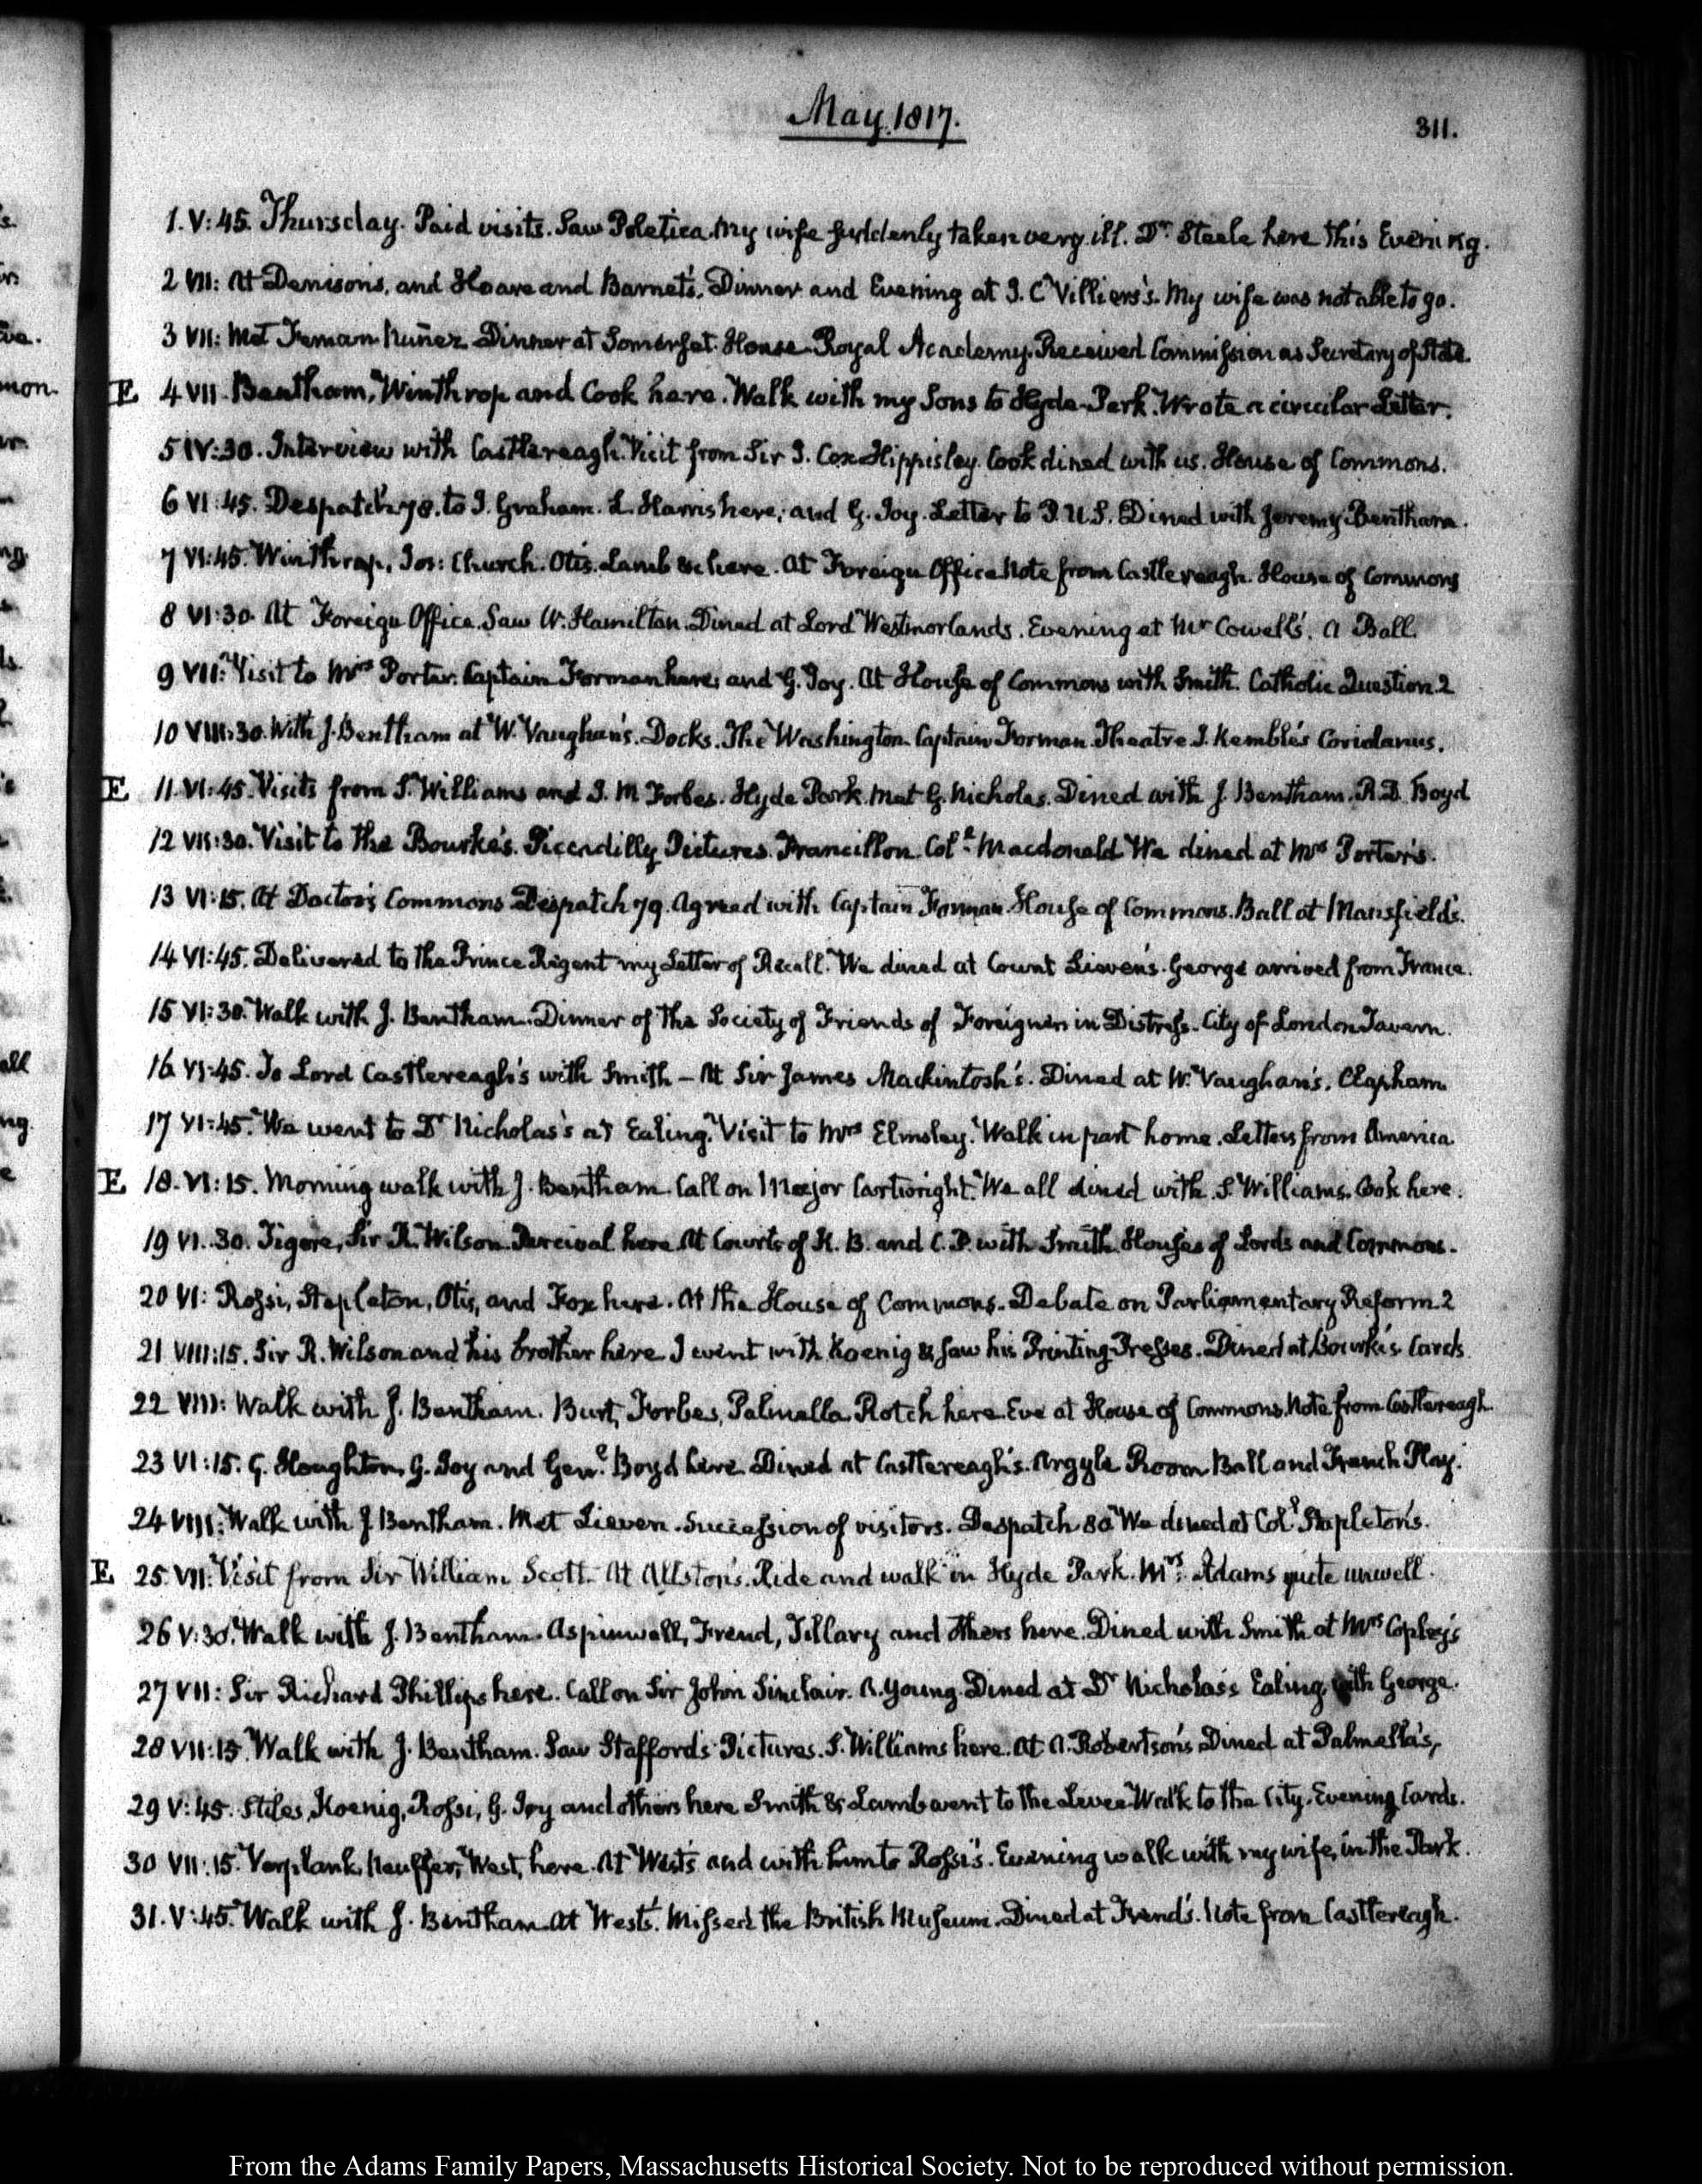 May 1817.
311.
1. V:45. Thursday. Paid visits. Saw Poletica. My wife suddenly taken very ill. Dr. Steele here this Evening.
2 VII: At Denison's, and Hoare and Barnet's. Dinner and Evening at J. C Villiers's. My wife was not able to go.
3 VII: Met Fernan Nuñez Dinner at Somerset House Royal Academy. Received Commission as Secretary of State.
E 4 VII. Bentham, Winthrop and Cook here. Walk with my Sons to Hyde-Park. Wrote a circular Letter.
5 IV:30. Interview with Castlereagh. Visit from Sir J. Cox Hippisley. Cook dined with us. House of Commons.
6 VI:45. Despatch 78. to J. Graham. L. Harris here, and G. Joy. Letter to P.U.S. Dined with Jeremy Bentham.
7 VI:45. Winthrop, Jos: Church. Otis. Lamb &c here. At Foreign Office Note from Castlereagh. House of Commons
8 VI:30. At Foreign Office. Saw W. Hamilton. Dined at Lord Westmorlands. Evening at Mr Cowell's. A Ball.
9 VII: Visit to Mrs Porter. Captain Forman here, and G. Joy. At House of Commons with Smith. Catholic Question. 2
10 VIII:30. With J. Bentham at W. Vaughan's. Docks. The Washington. Captain Forman. Theatre J. Kemble's Coriolanus.
E 11. VI:45. Visits from S. Williams and J. M Forbes. Hyde Park. Met G. Nicholas. Dined with J. Bentham. R.D. Boyd
12 VII:30. Visit to the Bourke's. Piccadilly Pictures. Francillon. Coll. Macdonald We dined at Mrs Porter's.
13 VI:15. At Doctor's Commons Despatch 79. Agreed with Captain Forman House of Commons. Ball at Mansfield's.
14 VI:45. Delivered to the Prince Regent my Letter of Recall. We dined at Count Lieven's. George arrived from France.
15 VI:30. Walk with J. Bentham. Dinner of the Society of Friends of Foreigners in Distress. City of London Tavern.
16 VI:45. To Lord Castlereagh's with Smith – At Sir James Mackintosh's. Dined at W. Vaughan's. Clapham
17 VI:45. We went to Dr Nicholas's at Ealing. Visit to Mrs Elmsley. Walk in part home. Letters from America.
E 18. VI:15. Morning walk with J. Bentham. Call on Major Cartwright. We all dined with S. Williams. Cook here.
19 VI.30. Tigere, Sir R. Wilson. Percival here At Courts of K. B. and C. P. with Smith. Houses of Lords and Commons.
20 VI: Rossi, Stapleton, Otis, and Fox here. At the House of Commons. Debate on Parliamentary Reform. 2
21 VIII:15. Sir R. Wilson and his brother here I went with Koenig & saw his Printing-Presses. Dined at Bourke's Cards
22 VIII: Walk with J. Bentham. Burt, Forbes, Palmella Rotch here. Eve at House of Commons. Note from Castlereagh.
23 VI:15. G. Houghton, G. Joy and Genl. Boyd here. Dined at Castlereagh's. Argyle Room Ball and French Play.
24 VIII: Walk with J. Bentham. Met Lieven. Succession of visitors. Despatch 80 We dined at Coll Stapleton's.
E 25. VII: Visit from Sir William Scott. At Allston's. Ride and walk in Hyde Park. Mrs. Adams quite unwell.
26 V:30. Walk with J. Bentham. Aspinwall, Frend, Tillary and others here. Dined with Smith at Mrs Copley's
27 VII: Sir Richard Phillips here. Call on Sir John Sinclair. A. Young. Dined at Dr Nicholas's Ealing, with George.
28 VII:15. Walk with J. Bentham. Saw Staffords Pictures. S. Williams here. At A. Robertson's Dined at Palmella's,
29 V:45. Stiles, Koenig, Rossi, G. Joy and others here Smith & Lamb went to the Levee. Walk to the City. Evening Cards.
30 VII:15. Verplank, Neuffer, West, here. At West's and with him to Rossi's. Evening walk with my wife, in the Park.
31. V:45. Walk with J. Bentham At West's. Missed the British Museum. Dined at Frend's. Note from Castlereagh.
From the Adams Family Papers, Massachusetts Historical Society. Not to be reproduced without permission.